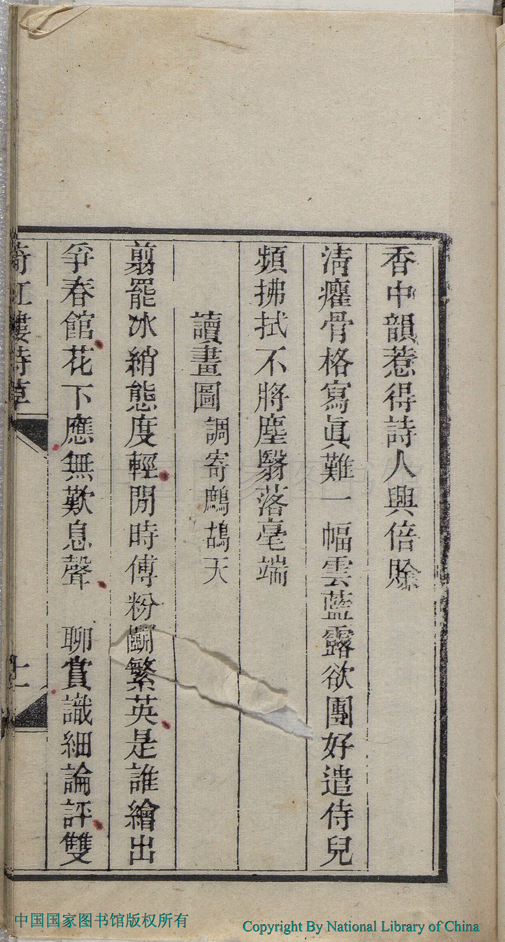 香中韻惹得詩人興倍賒
清癯骨格寫眞難一幅雲藍露欲團好遣侍兒
頻拂拭不將塵翳落毫端
讀畫圖 調寄鷓鴣天
翦罷冰綃態度輕閒時傅粉鬭繁英是誰繪出
爭春館花下應無歎息聲 聊賞識細論評雙
紅樓詩草
十一
中国国家图书馆版权所有
Copyright By National Library of China